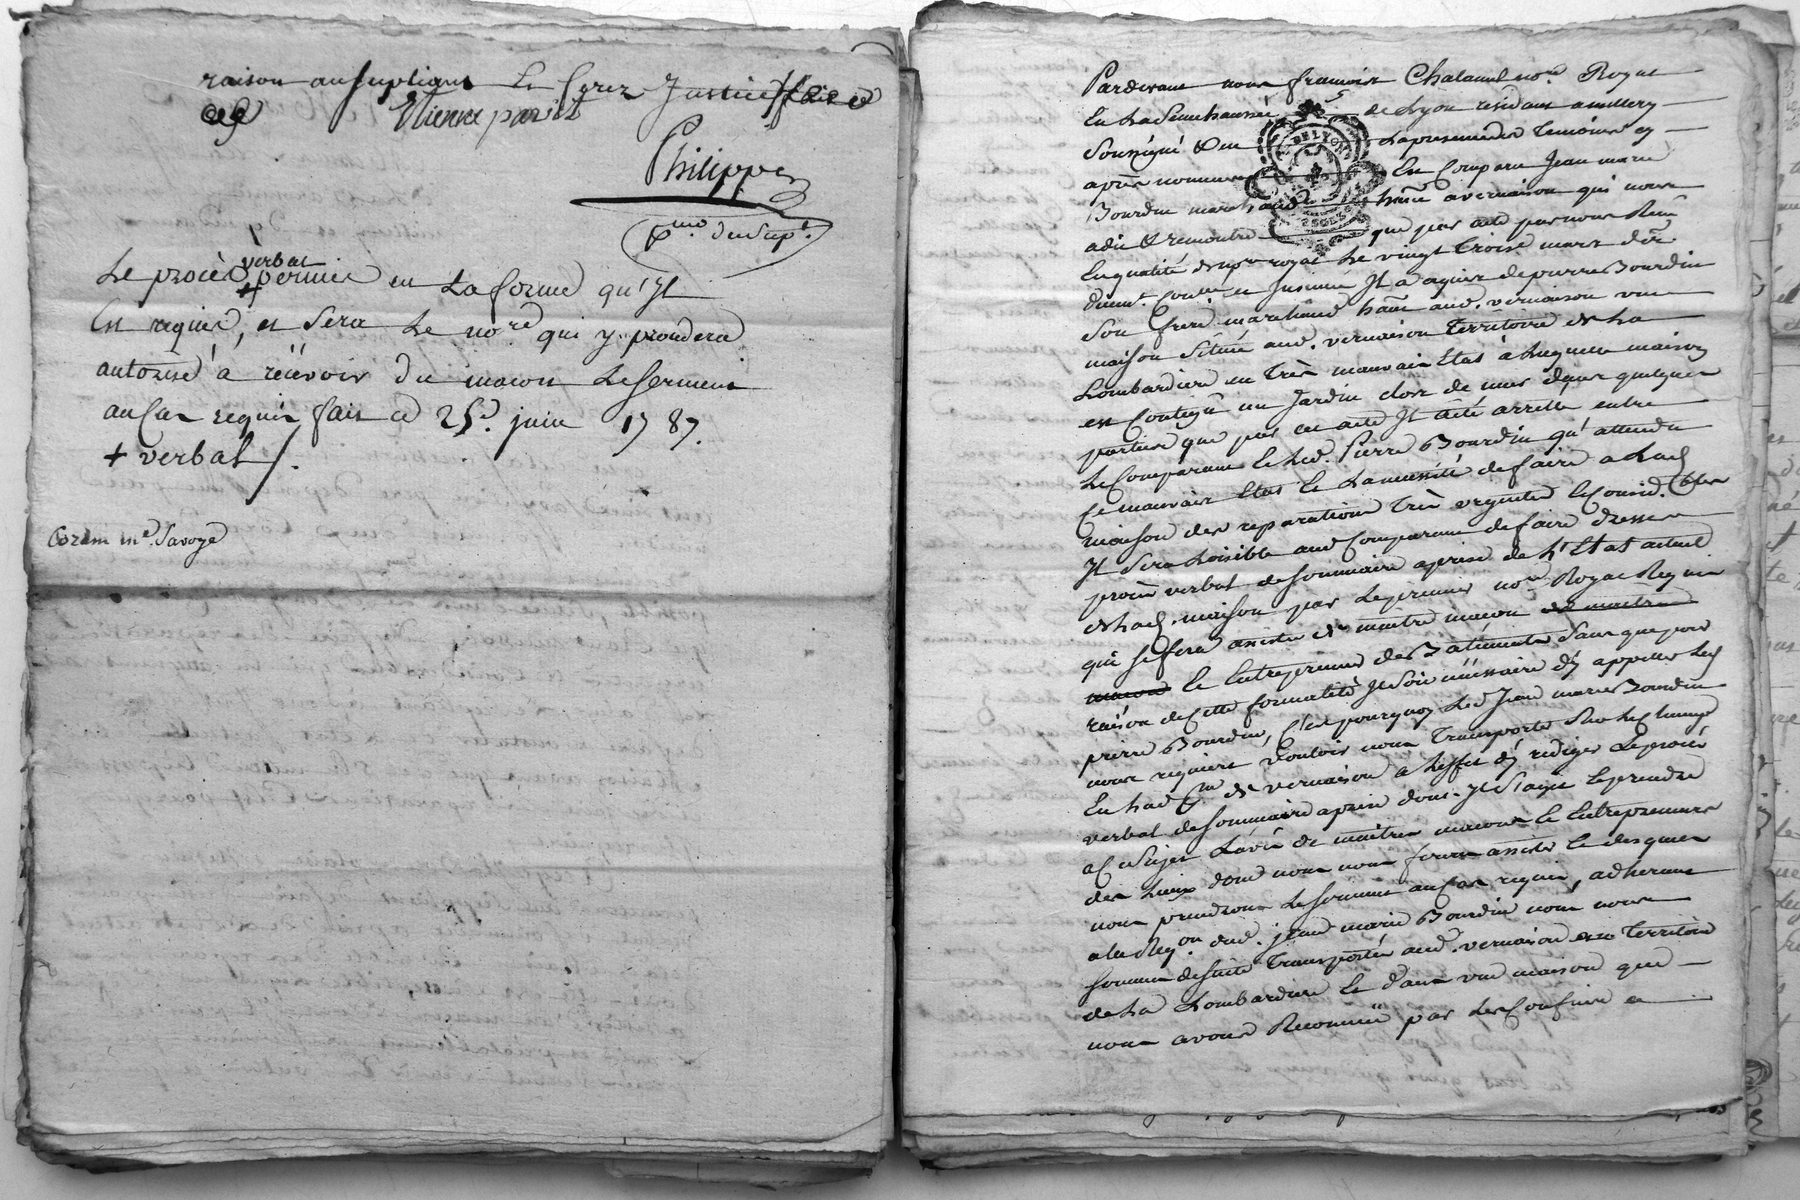 raison au supliant Et ferez Justice
Philippe
pro. du sup.t
verbal
Le procès + permis en La forme qu'Il
Est requis, et Sera Le no.re qui y procedera
autorisé a recevoir du maçon Le Serment
au Cas requis fait ce 25.e juin 1787.
+ verbal
Savoye
Pardevant nous françois Chalamel no.re Royal
En La Senechaussée de Lyon résidant a millery
Soussigné & en La presence des Temoins cy
après nommés Est Comparu Jean marie
Bourdin marchand a vernaison qui nous
a dit & remontré que par acte par nous Reçu
En qualité de no.re royal Le vingt trois mars
Il a aquis de pierre Bourdin
Son frere marchand aud. vernaison une
maison Située aud. vernaison Territoire de La
Lombardiere en Très mauvais Etat à Laquelle maison
est Contigu un Jardin clos de murs dans quelques
parties que par cet acte Il a été arretté entre
Le Comparant & Led. Pierre Bourdin qu'attendu
Ce mauvais Etat & La necessité de faire a Lad.
maison des reparations Très urgentes
Il Sera Loisible aud. Comparant de faire dresser
procès verbal de Sommaire aprise de L'Etat actuel
de Lad. maison par Le premier no.re Royal Requis
qui Se fera assister de maitre maçon
& Entrepreneur de Batiments Sans que pour
raison de Cette formalité Il Soit nécessaire d'y appeller Led.
pierre Bourdin, C'est pourquoy Led. Jean marie Bourdin
nous requiert vouloir nous Transporter Sur Le Champ
En Lad. de vernaison a L'effet d'y rediger Le procès
verbal de Sommaire aprise dont Il S'agit & prendre
a ce Sujet L'avis de maitres maçons & Entrepreneurs
des Lieux dont nous nous ferons assister & desquels
nous prendrons Le Serment au Cas requis, adherant
a la Req.on dud. jean marie Bourdin nous nous
Sommes de Suite Transportés aud. vernaison Territoire
de La Lombardiere & dans une maison que
nous avons Reconnüe par Les Confins